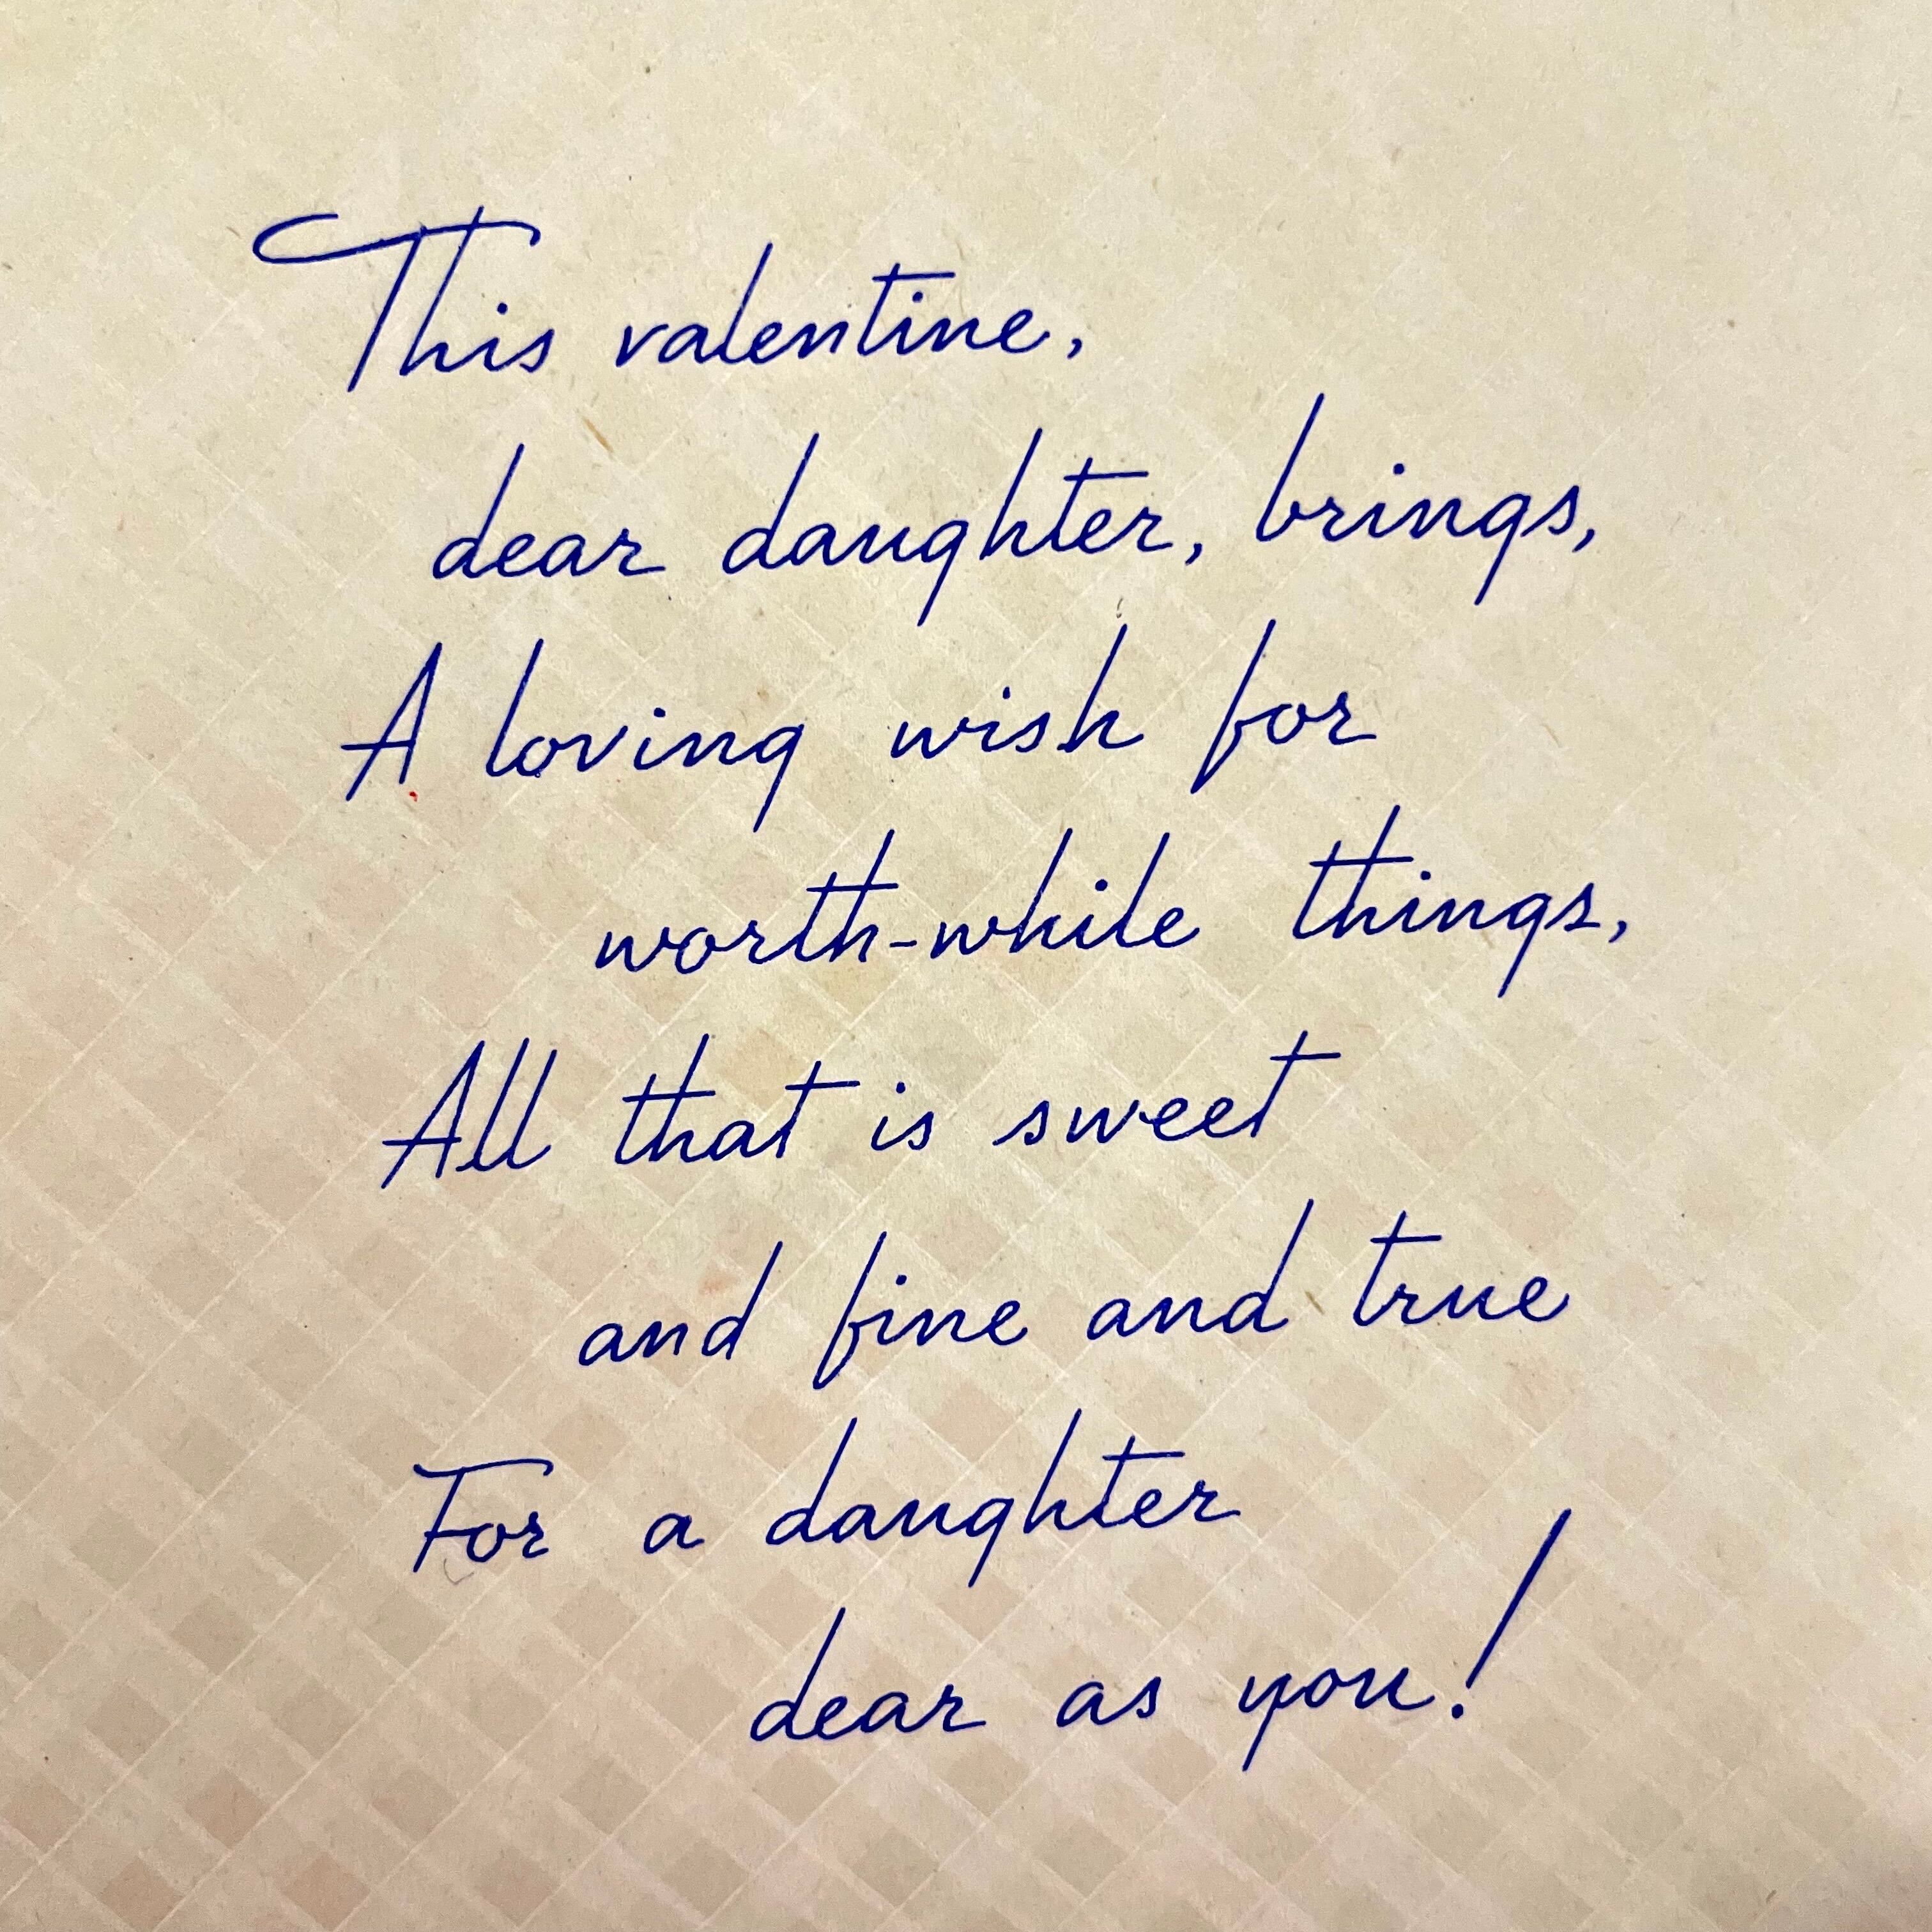 This valentine,
dear daughter, brings,
A loving wish for
worth-while things,
All that is sweet
and fine and true
For a daughter
dear as you!